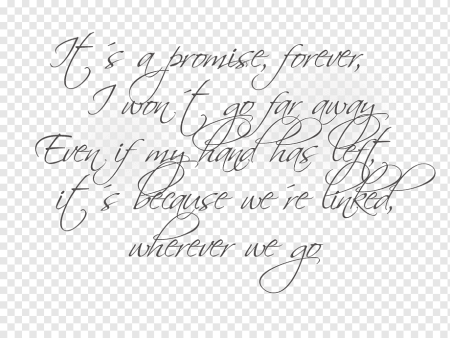 It´s a promise, forever,
I won´t go far away
Even if my hand has left,
it´s because we´re linked,
wherever we go